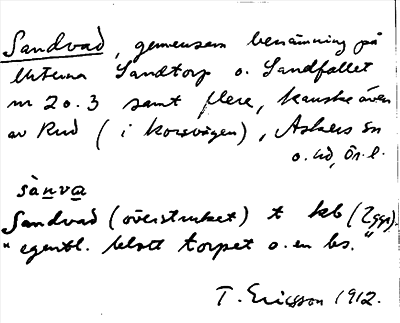 Sandvad, gemensam benämning på
lhterna Sandtorp o. Sandfallet
nr 2 o. 3 samt flere, kanske även
av Rud (i Korsvägen), Askers sn
o. hd, Ör. l.
sànva
Sandvad (överstruket) t kb (2 ggr).
"egentl. blott torpet o. en bs."
T. Ericsson 1912.